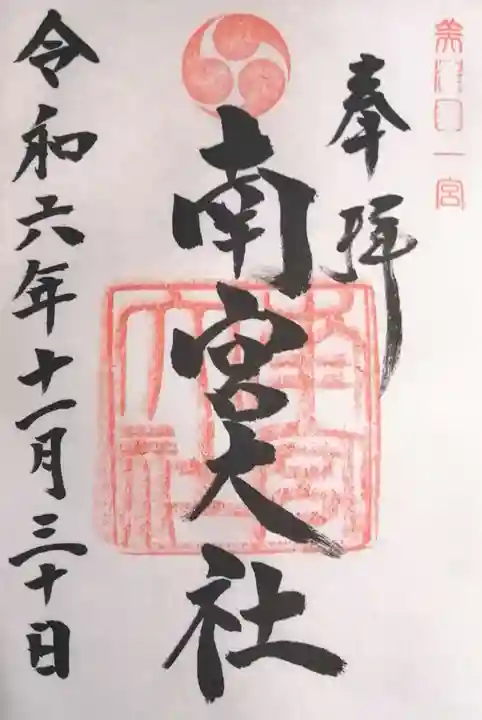 美濃國一宮
奉拝
南宮大社
令和六年十一月三十日